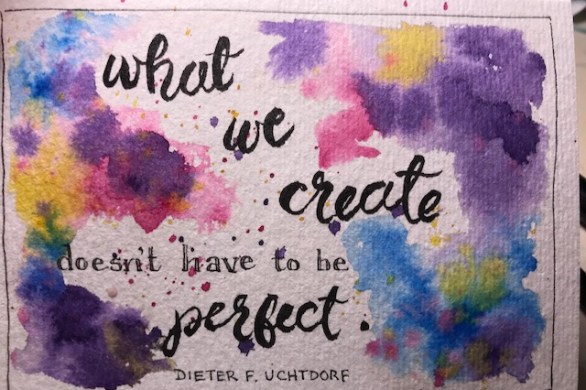 what
we
create
doesn't have to be
perfect.
DIETER F. UCHTDORF